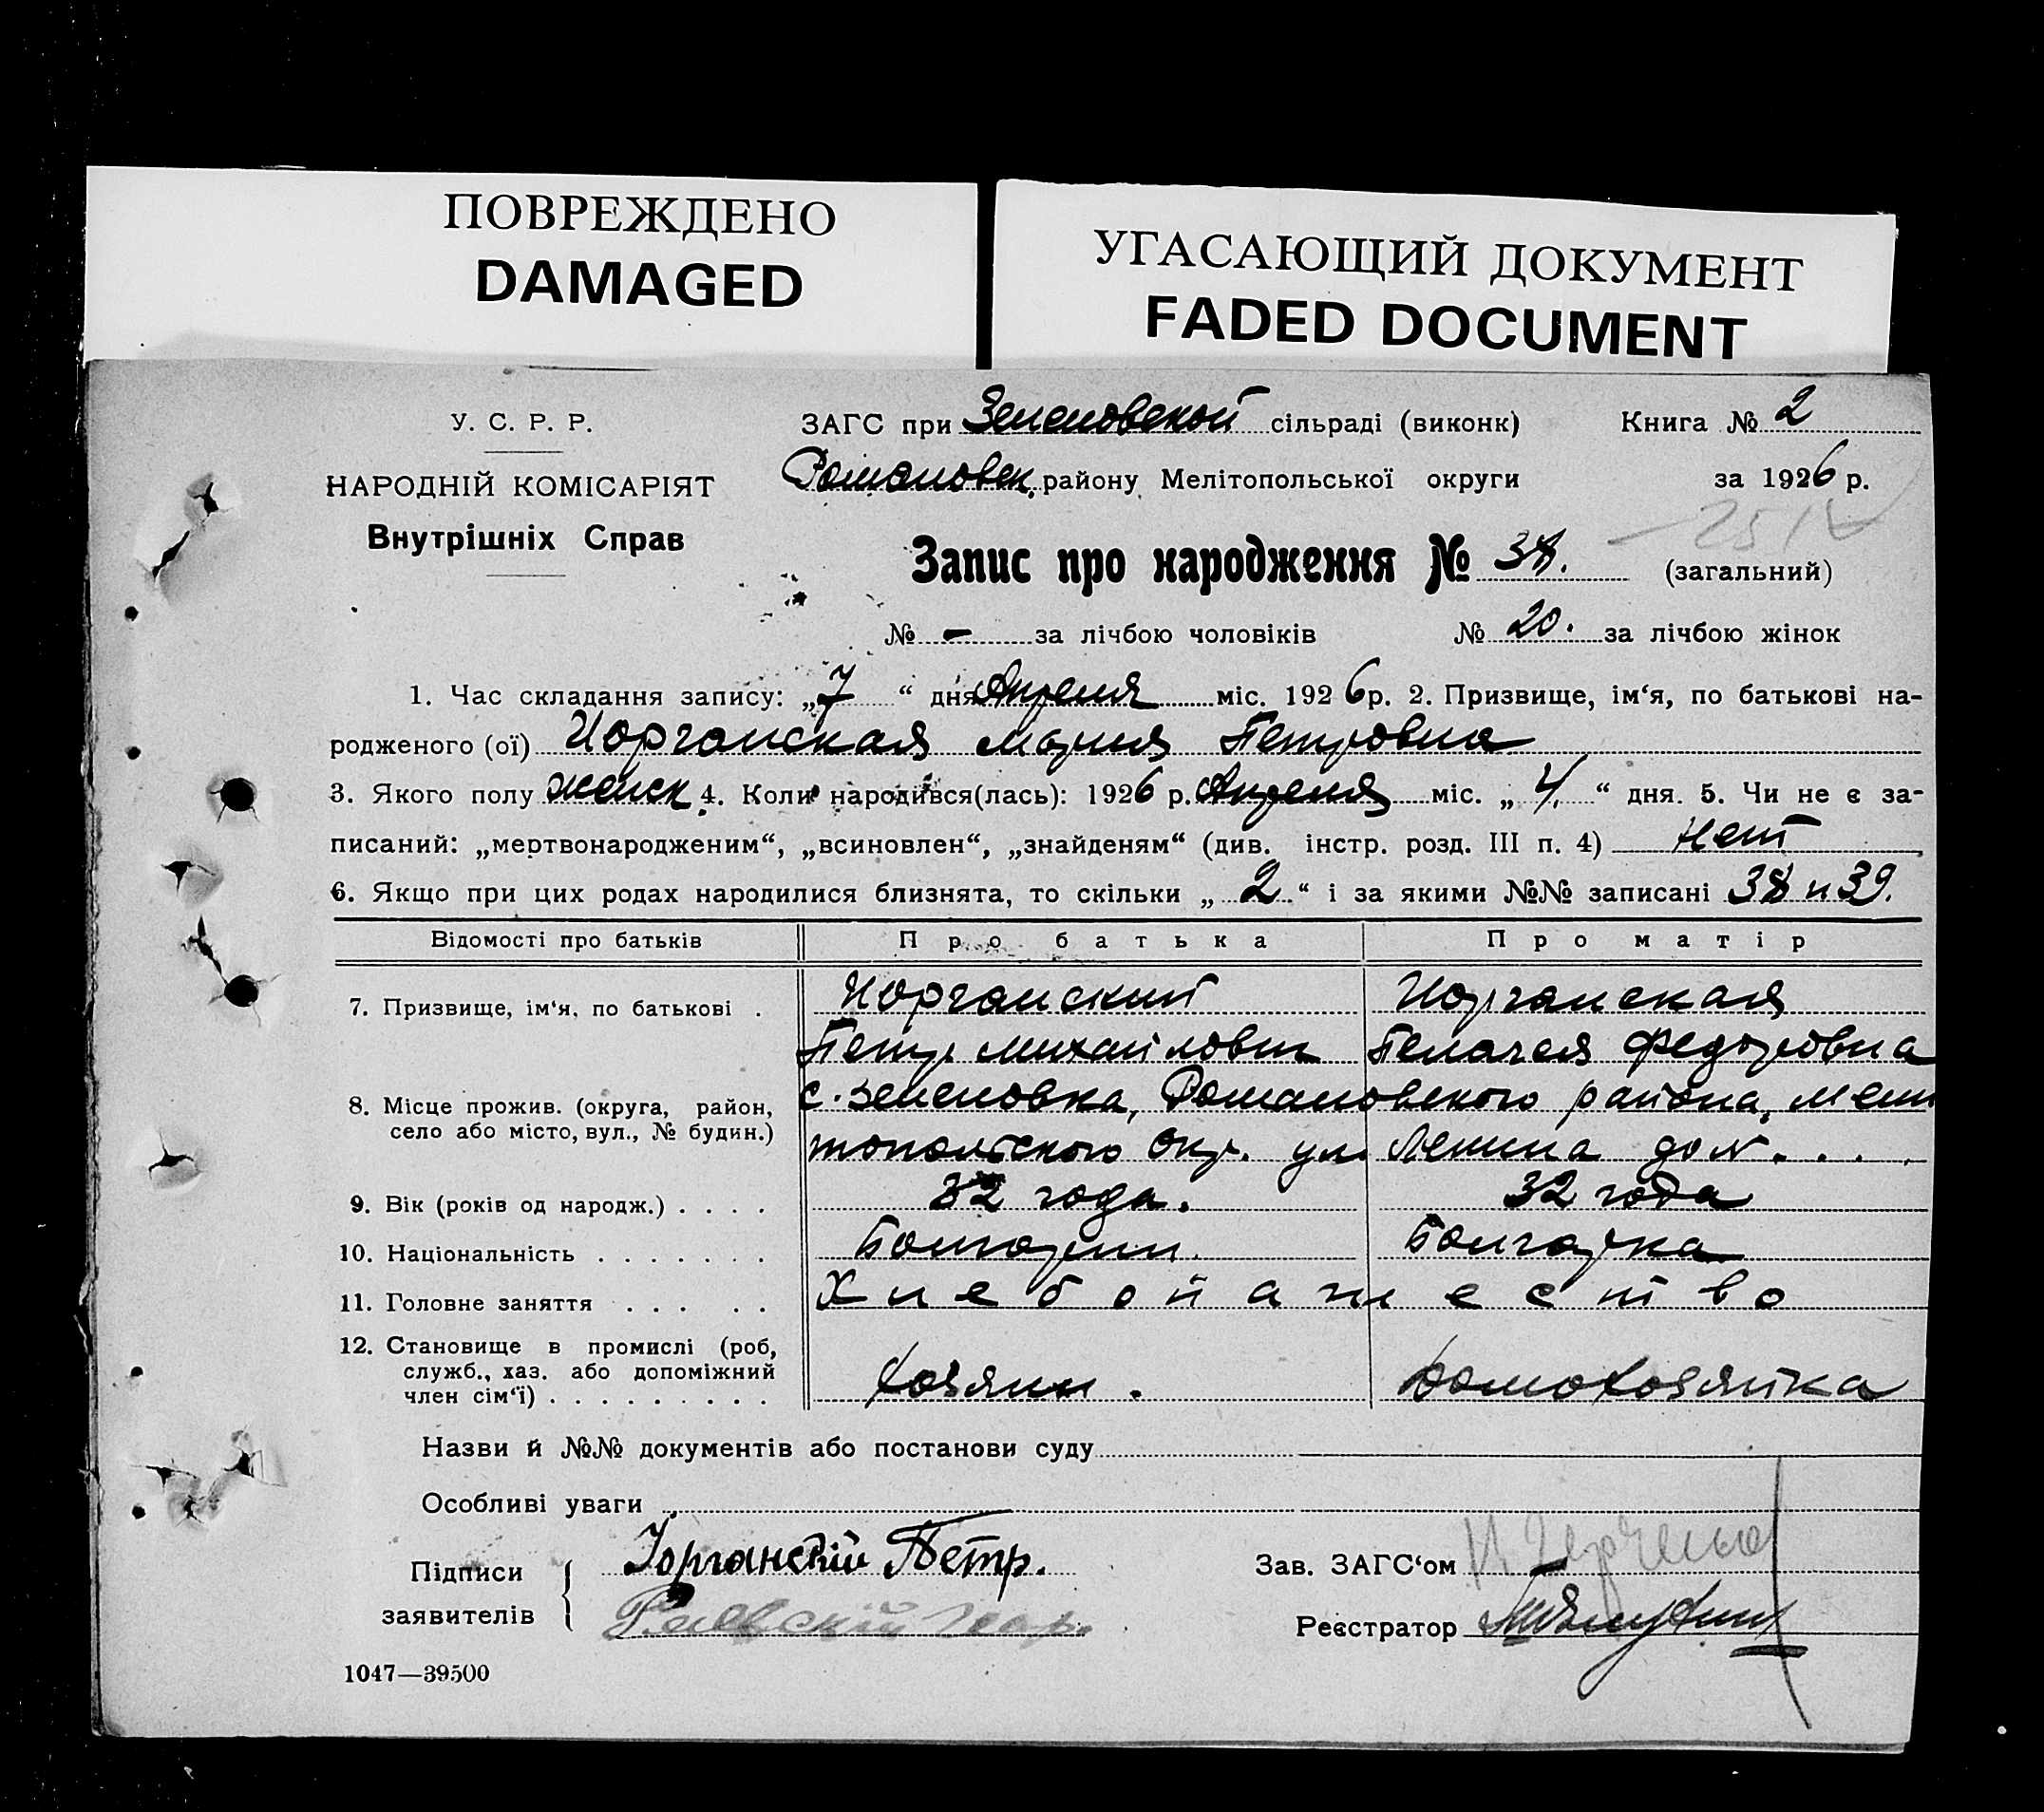 ПОВРЕЖДЕНО
DAMAGED
УГАСАЮЩИЙ ДОКУМЕНТ
FADED DOCUMENT
У. С. Р. Р.
НАРОДНІЙ КОМІСАРІЯТ
Внутрішніх Справ
ЗАГС при Зеленовской сільраді (виконк) Книга № 2
Романовск. району Мелітопольської округи за 1926 р.
Запис про народження № 38. (загальний)
№ - за лічбою чоловіків № 20. за лічбою жінок
1. Час складання запису: „7“ дня Апреля міс. 1926 р. 2. Призвище, ім‘я, по батькові на-
родженого (ої) Иорганская Мария Петровна
3. Якого полу женск 4. Коли народився(лась): 1926 р. Апреля міс. „4“ дня. 5. Чи не є за-
писаний: „мертвонародженим“, „всиновлен“, „знайденям“ (див. інстр. розд. III п. 4) Нет
6. Якщо при цих родах народилися близнята, то скільки „2“ і за якими №№ записані 38 и 39.
Відомості про батьків Про батька Про матір
7. Призвище, ім‘я, по батькові . Иорганский Иорганская
Петр Михайлович Пелагея Федоровна
8. Місце прожив. (округа, район, село або місто, вул., № будин.) с. Зеленовка, Романовского района, Мели
топольского Окр. ул. Ленина дом . . . .
9. Вік (років од народж.) . . . . 32 года. 32 года
10. Національність . . . . . . . Болгарин. Болгарка
11. Головне заняття . . . . . Хлебопашество
12. Становище в промислі (роб, служб., хаз. або допоміжний член сім‘ї) . . . . . . . . . Хозяин. Домохозяйка
Назви й №№ документів або постанови суду
Особливі уваги
Підписи заявителів Іорганскій Петр.
Зав. ЗАГС‘ом
Реєстратор
1047—39500